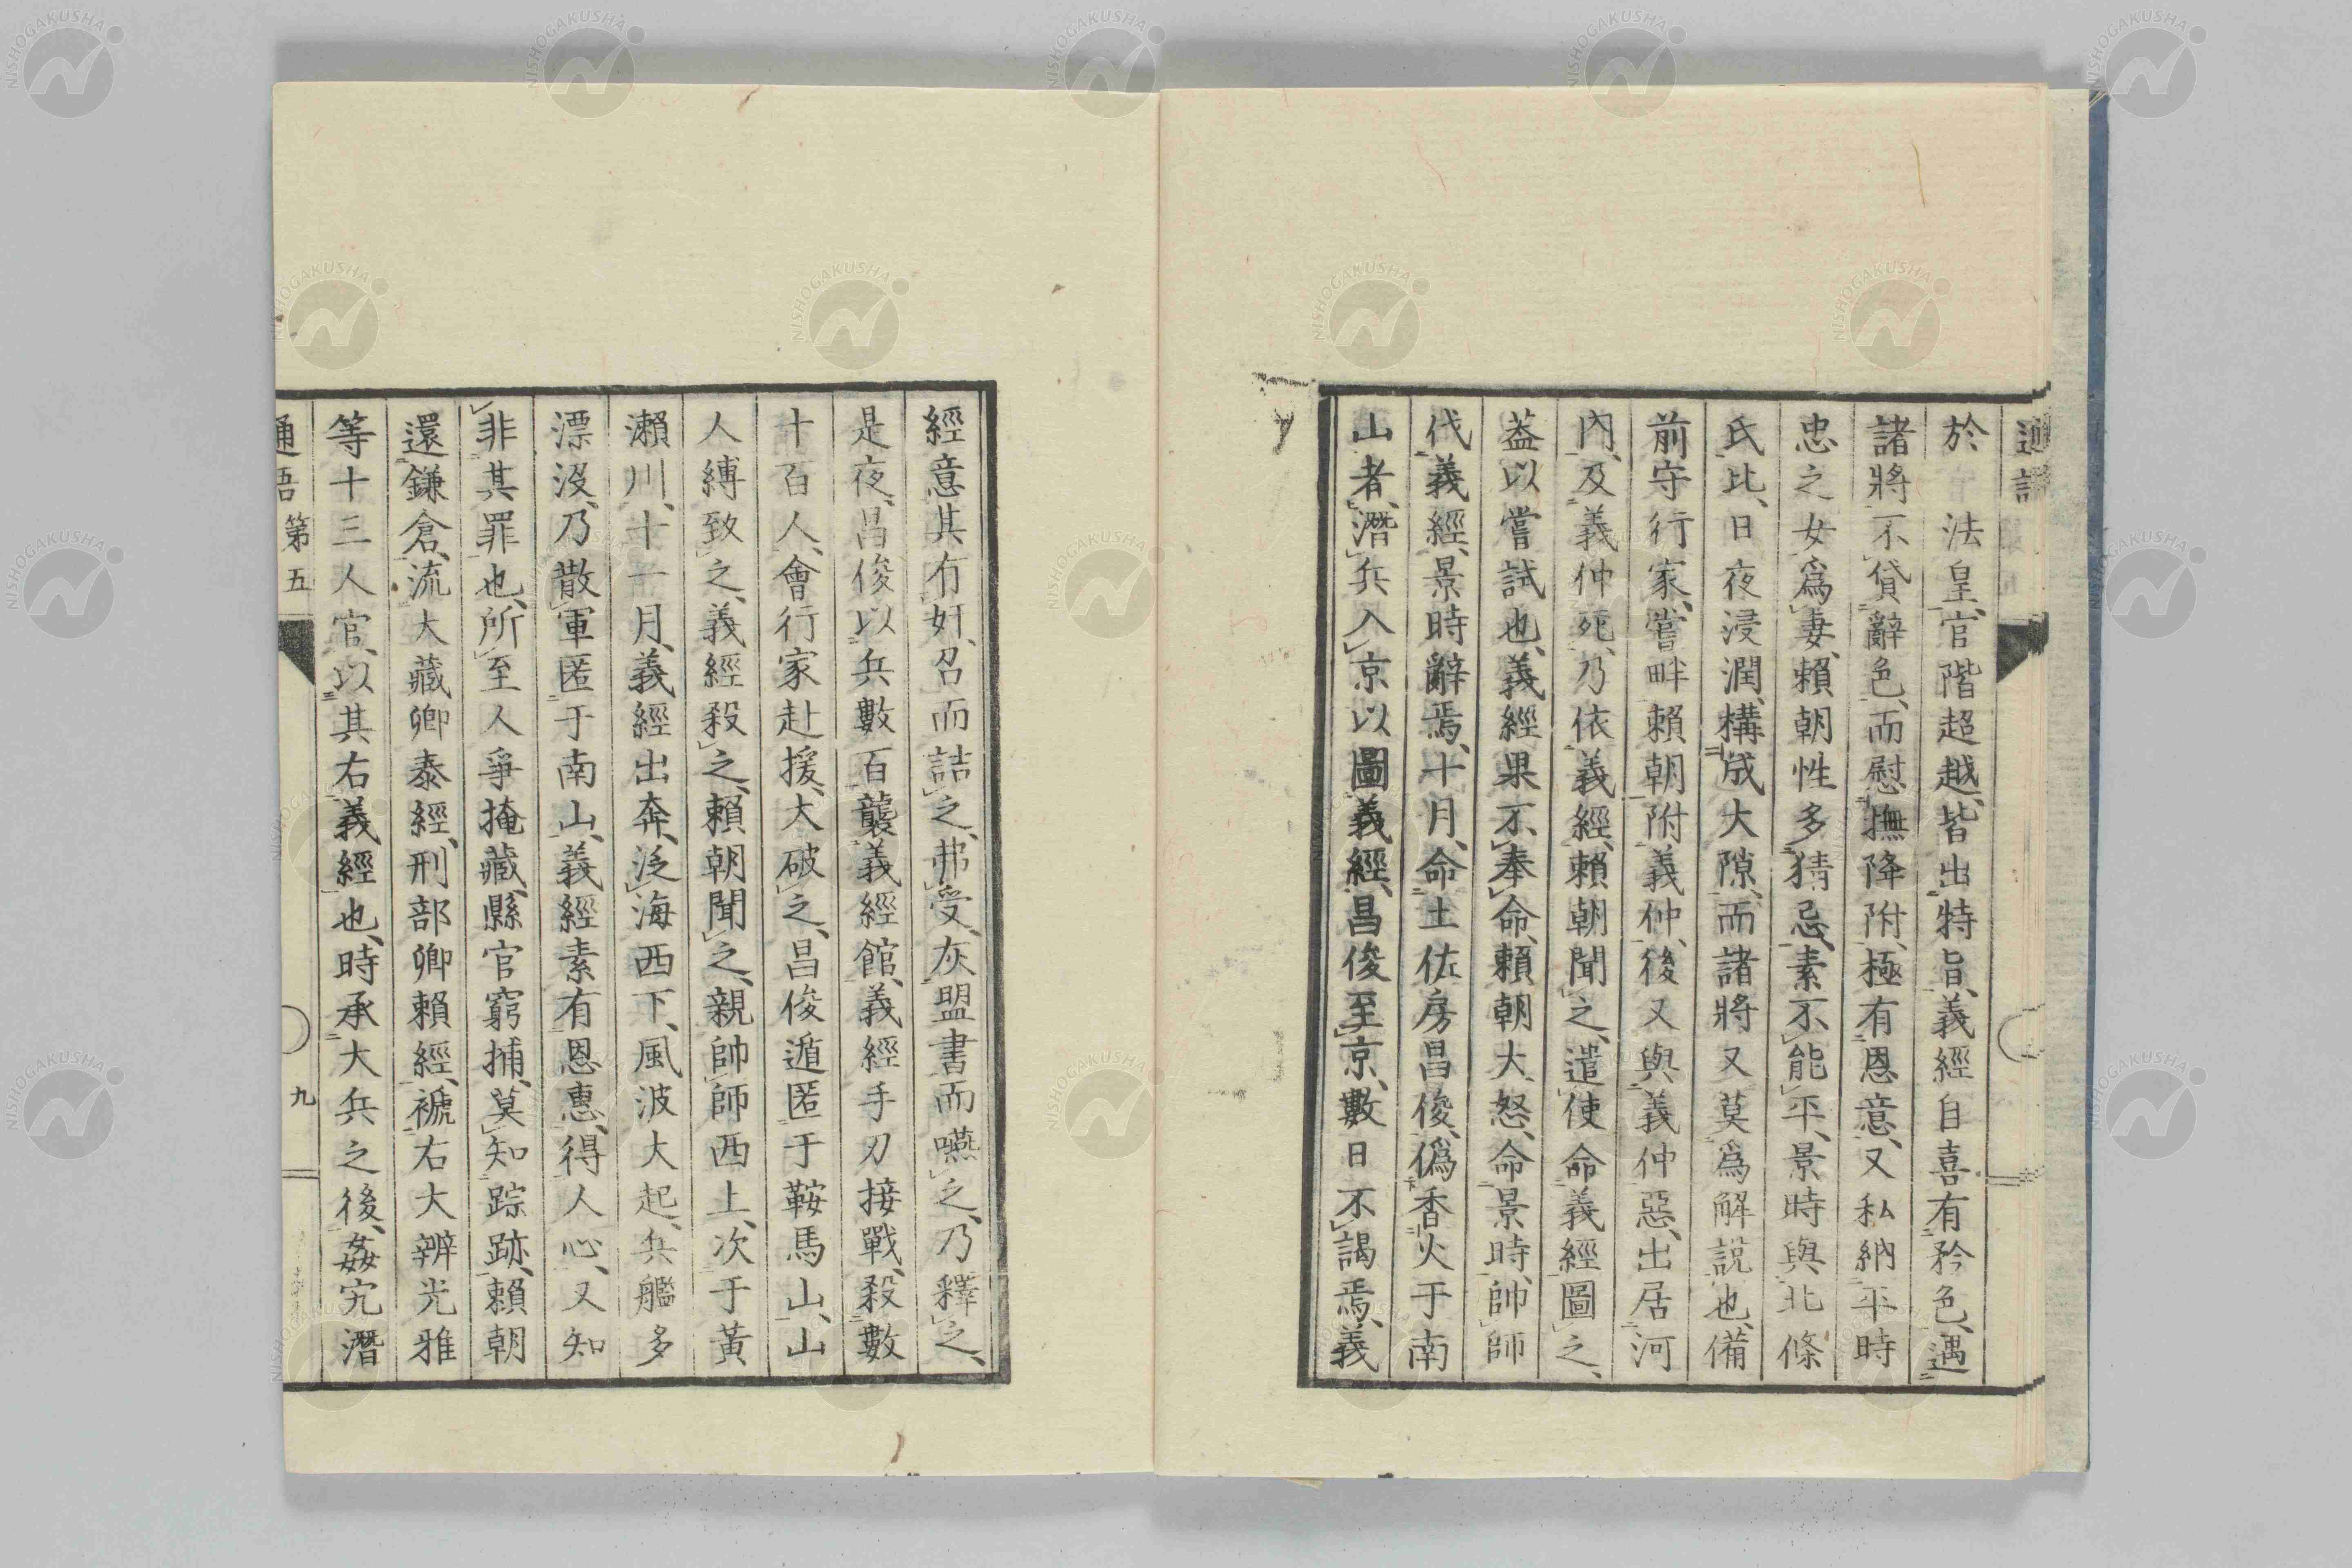 於　法皇、官階超越、皆出特旨、義經自喜有矜色、遇
諸將不貸辭色、而慰撫降附、極有恩意、又私納平時
忠之女爲妻、賴朝性多猜忌、素不能平、景時與北條
氏比、日夜浸潤、構成大隙、而諸將又莫爲解說也、備
前守行家、嘗畔賴朝附義仲、後又與義仲惡、出居河
內、及義仲死、乃依義經、賴朝聞之、遣使命義經圖之、
葢以嘗試也、義經果不奉命、賴朝大怒、命景時帥師
伐義經、景時辭焉、十月、命土佐房昌俊、僞香火于南
山者、潛兵入京以圖義經、昌俊至京、數日不謁焉、義
經意其有奸、召而詰之、弗受、灰盟書而嚥之、乃釋之、
是夜、昌俊以兵數百襲義經館、義經手刃接戰、殺數
十百人、會行家赴援、大破之、昌俊遁匿于鞍馬山、山
人縛致之、義經殺之、賴朝聞之、親帥師西上、次于黃
瀨川、十一月、義經出奔、泛海西下、風波大起、兵艦多
漂沒、乃散軍匿于南山、義經素有恩惠、得人心、又知
非其罪也、所至人爭掩藏、縣官窮捕、莫知踪跡、賴朝
還鎌倉、流大藏卿泰經、刑部卿賴經、褫右大辨光雅
等十三人官、以其右義經也、時承大兵之後、姦宄潛
通語 第五
九
NISHOGAKUSHA